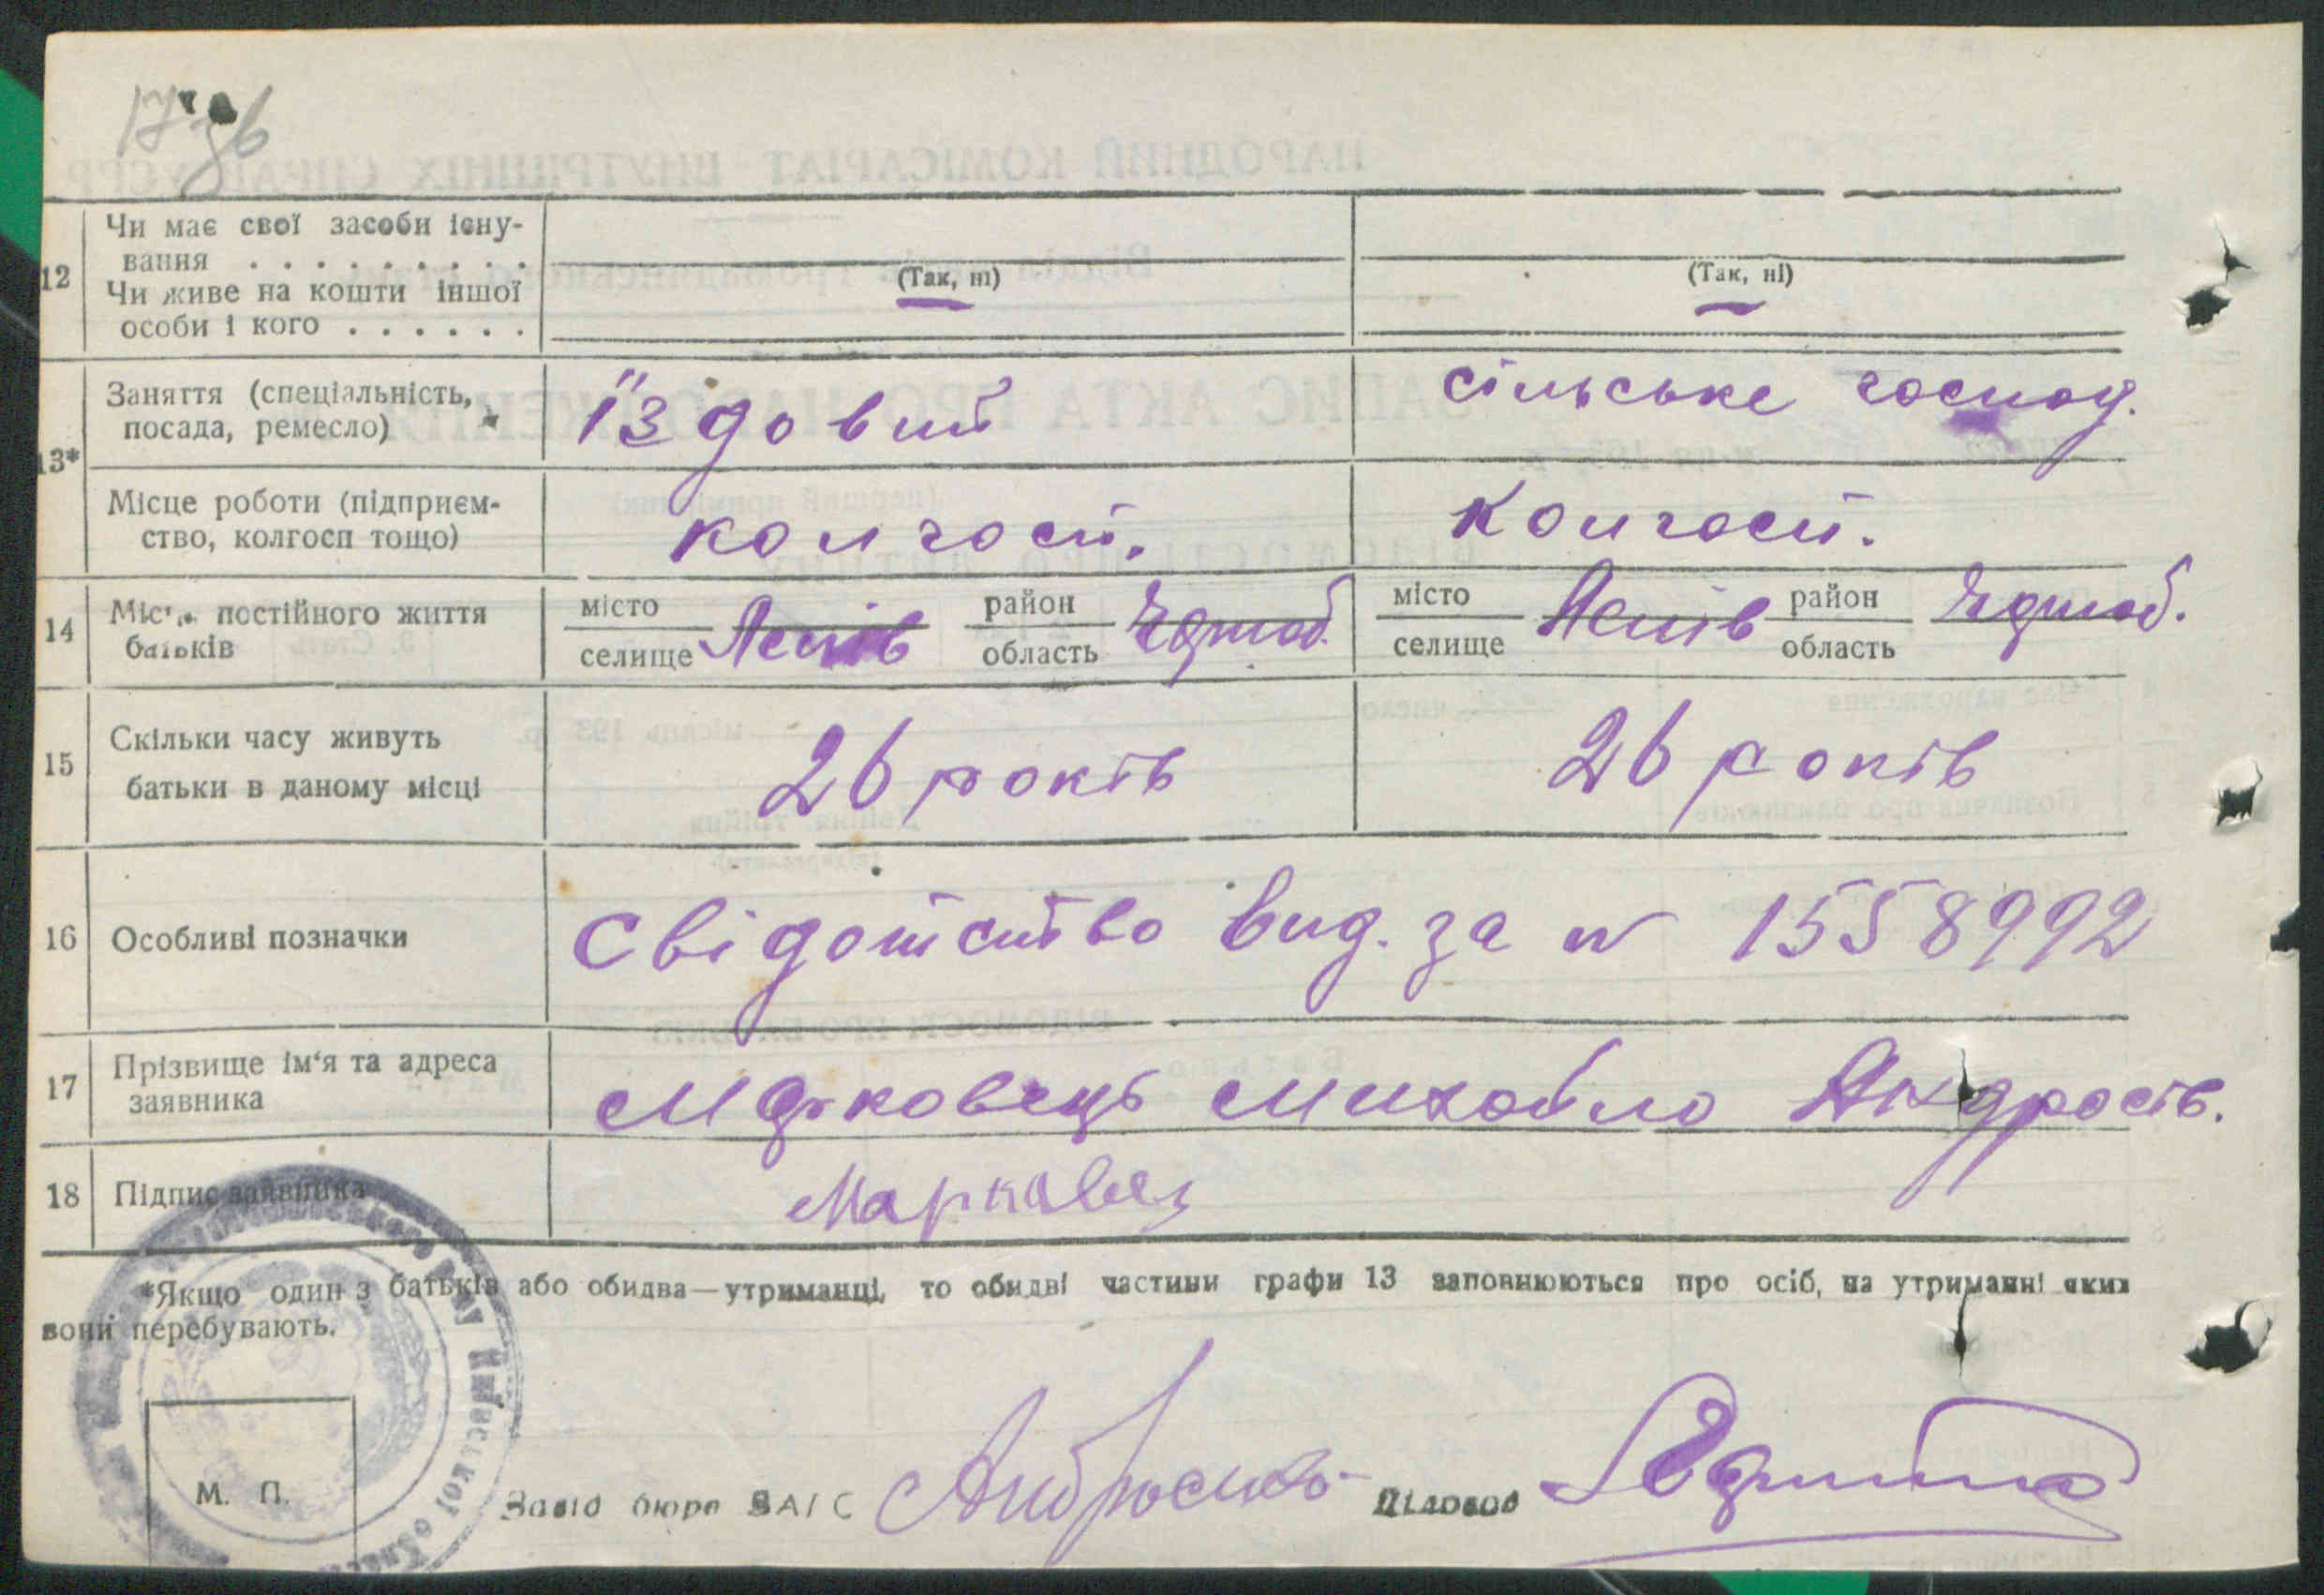 17 зв
12 Чи має свої засоби існу-
вання . . . . . . . . . (Так, ні) (Так, ні)
Чи живе на кошти іншої
особи і кого . . . . . .
13* Заняття (спеціальність, посада, ремесло) їздовий сільське господ.
Місце роботи (підприєм-
ство, колгосп тощо) колгосп. Колгосп.
14 Місце постійного життя батьків місто селище район область місто селище район область
15 Скільки часу живуть батьки в даному місці 26 років 26 років
16 Особливі позначки Свідотство вид. за № 1558992
17 Прізвище ім'я та адреса заявника Марковець Михайло Андросів.
18 Підпис заявника Марковец
*Якщо один з батьків або обидва—утриманці, то обидві частини графи 13 заповнюються про осіб, на утриманні яких
вони перебувають.
М. П.
Завід бюро ЗАГС Діловод